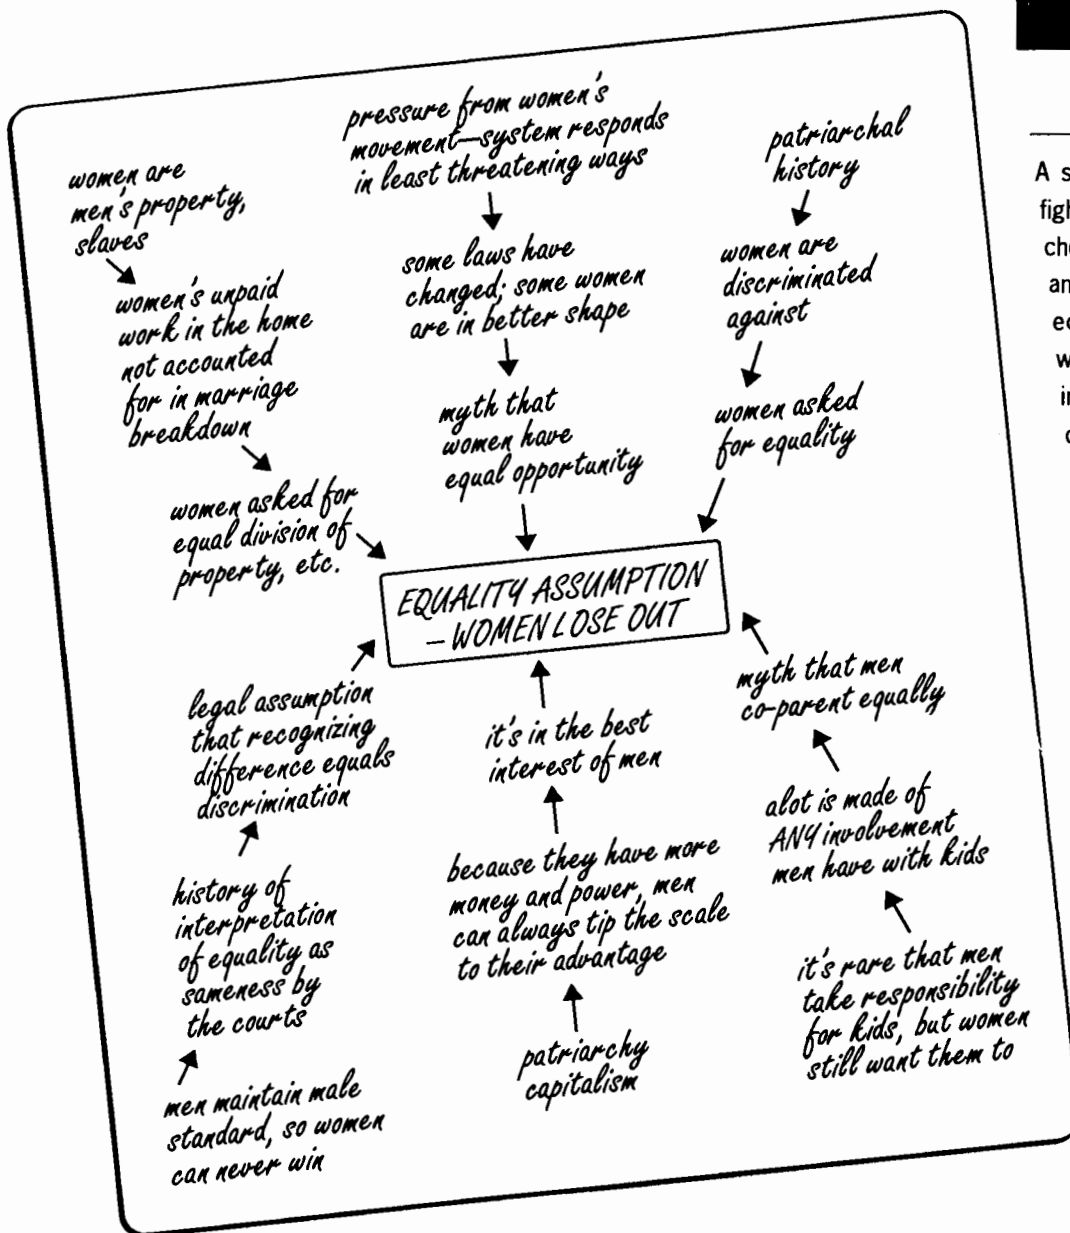 women are
men's property,
slaves
women's unpaid
work in the home
not accounted
for in marriage
breakdown
women asked for
equal division of
property, etc.
pressure from women's
movement—system responds
in least threatening ways
some laws have
changed; some women
are in better shape
myth that
women have
equal opportunity
patriarchal
history
women are
discriminated
against
women asked
for equality
EQUALITY ASSUMPTION
– WOMEN LOSE OUT
legal assumption
that recognizing
difference equals
discrimination
history of
interpretation
of equality as
sameness by
the courts
men maintain male
standard, so women
can never win
it's in the best
interest of men
because they have more
money and power, men
can always tip the scale
to their advantage
patriarchy
capitalism
myth that men
co-parent equally
alot is made of
ANY involvement
men have with kids
it's rare that men
take responsibility
for kids, but women
still want them to
A